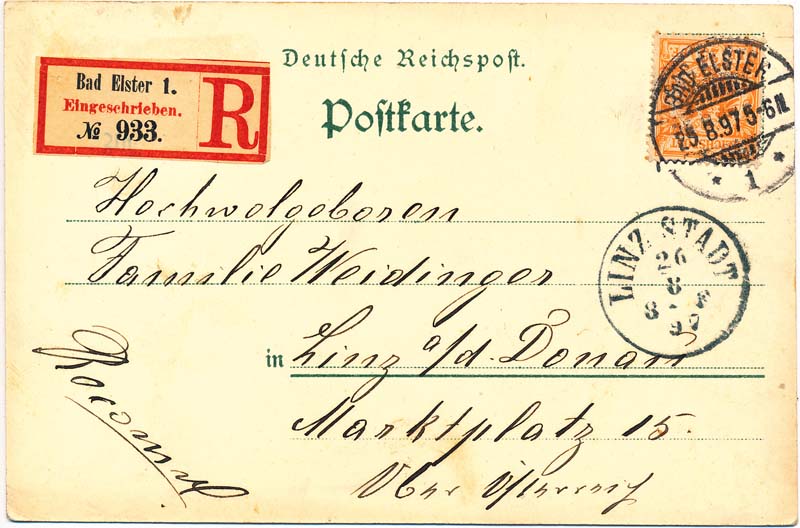 Deutsche Reichspost.
Postkarte.
Bad Elster 1.
Eingeschrieben.
№ 933.
R
BAD ELSTER
25.8.97 5-6N.
* 1 *
Hochwolgeboren
Familie Weidinger
in Linz a/d. Donau
Marktplatz 15.
Ober Österreich
LINZ STADT
26
8
8
97